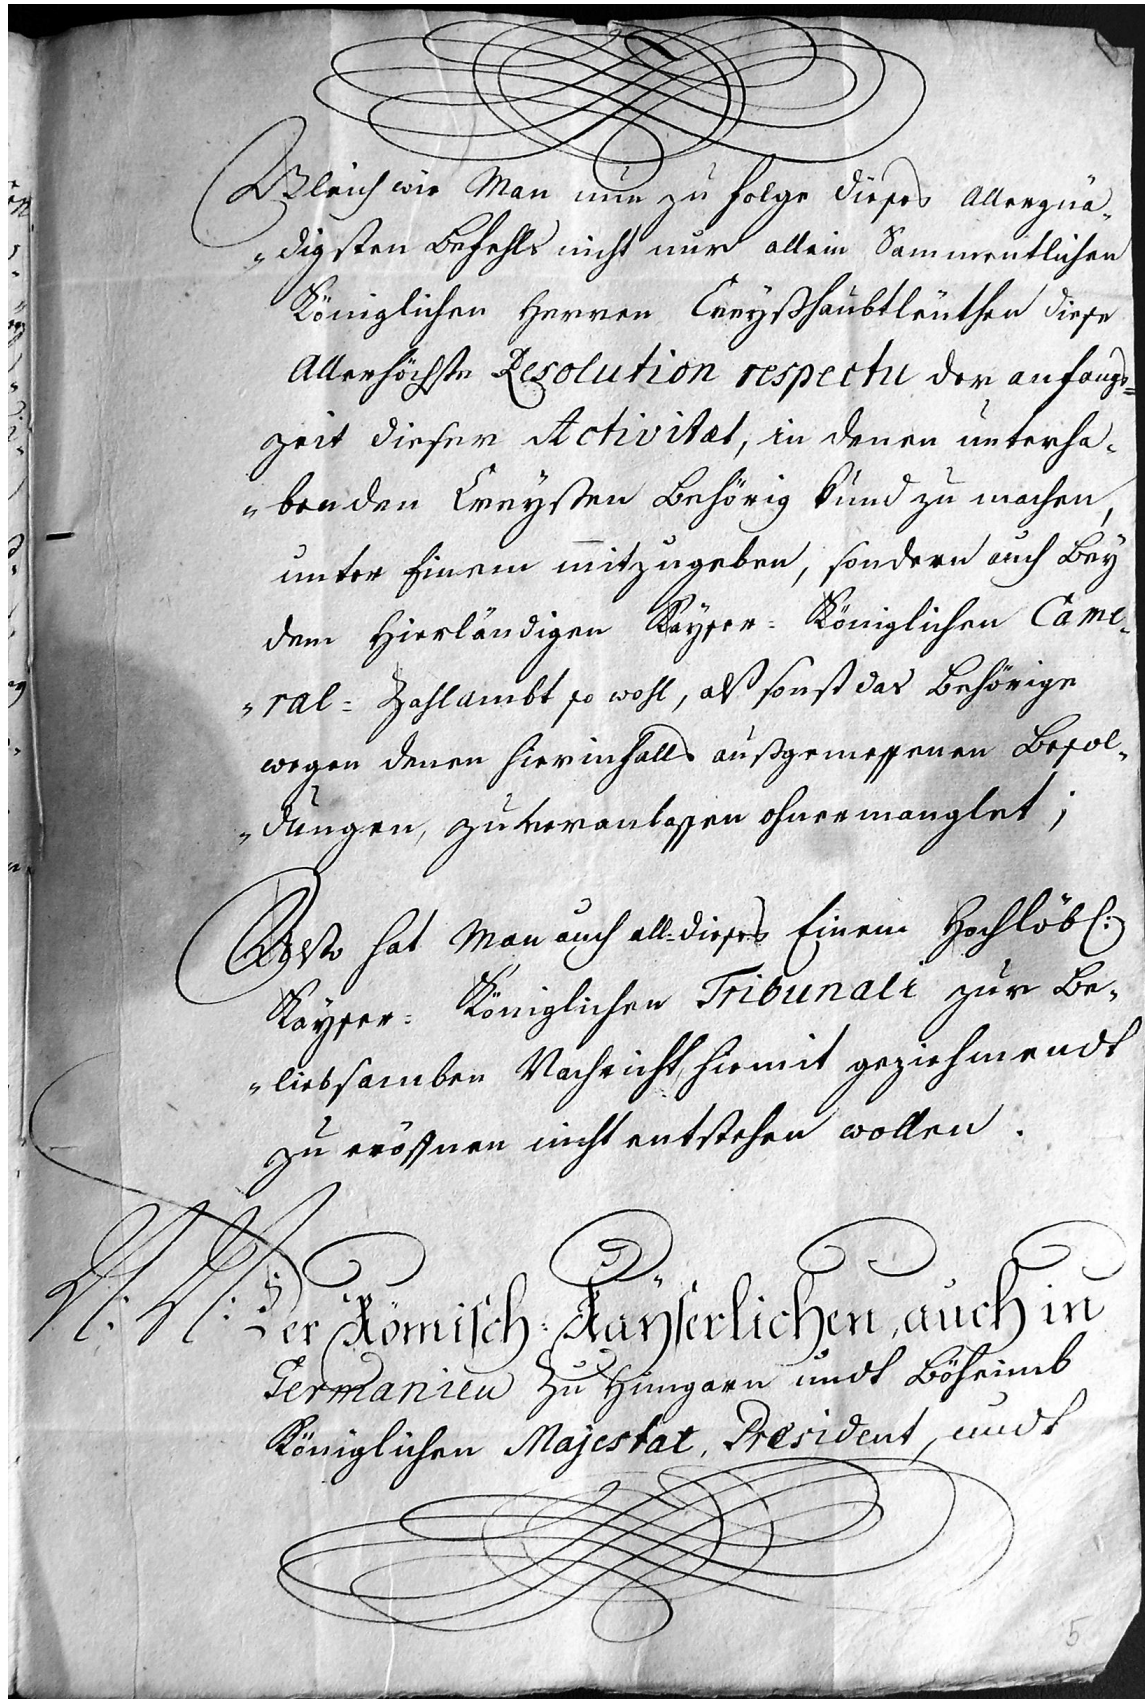 Gleich wie Man nun zu folge dieses Allergnä„
„digsten Befehls nicht nur allein Sammentlichen
Königlichen Herren Creyßhaubtleüthen diese
Allerhöchste Resolution respectu der anfangs=
zeit dieser Activitæt, in denen unterha„
„benden Creysen Behörig kund zu machen,
unter Einem mitzugeben, sondern auch Bey
dem Hierländigen Kayser= Königlichen Came„
„ral= Zahlambt so wohl, alß sonst das Behörige
wegen denen hierinfalls außgemessenen Besol„
„dungen, zu veranlassen ohnermanglet;
Also hat Man auch all=dieses Einem Hochlöbl:
Kayser= Königlichen Tribunali zur Be„
„liebsamben Nachricht hiemit geziehmendt
zu eröffnen nicht entstehen wollen.
N: N: Der Römisch= Kaÿserlichen, auch in
Germanien zu Hungarn undt Böheimb
Königlichen Majestæt, Præsident, undt
5